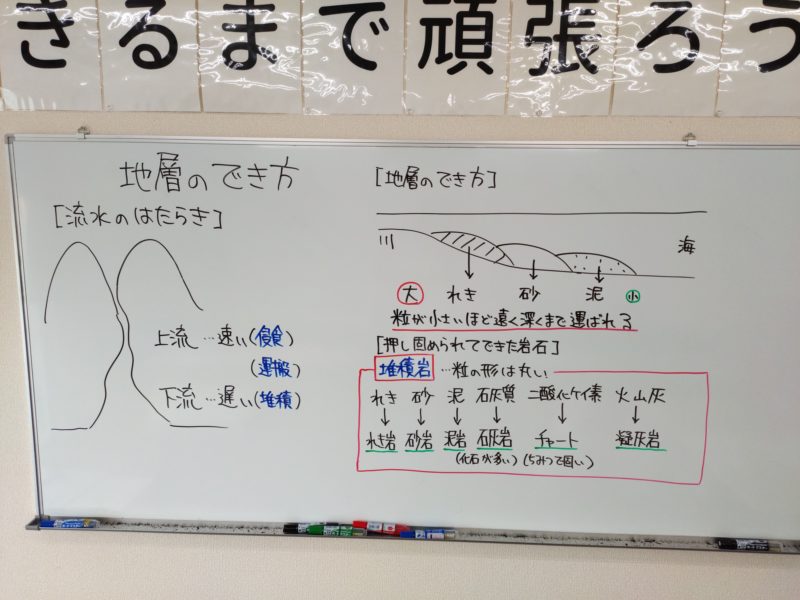 きるまで頑張ろう
地層のでき方
[流水のはたらき]
上流…速い(侵食)
(運搬)
下流…遅い(堆積)
[地層のでき方]
川 海
大 れき 砂 泥 小
粒が小さいほど遠く深くまで運ばれる
[押し固められてできた岩石]
堆積岩…粒の形は丸い
れき 砂 泥 石灰質 二酸化ケイ素 火山灰
れき岩 砂岩 泥岩 石灰岩 チャート 凝灰岩
(化石が多い) (ちみつで固い)